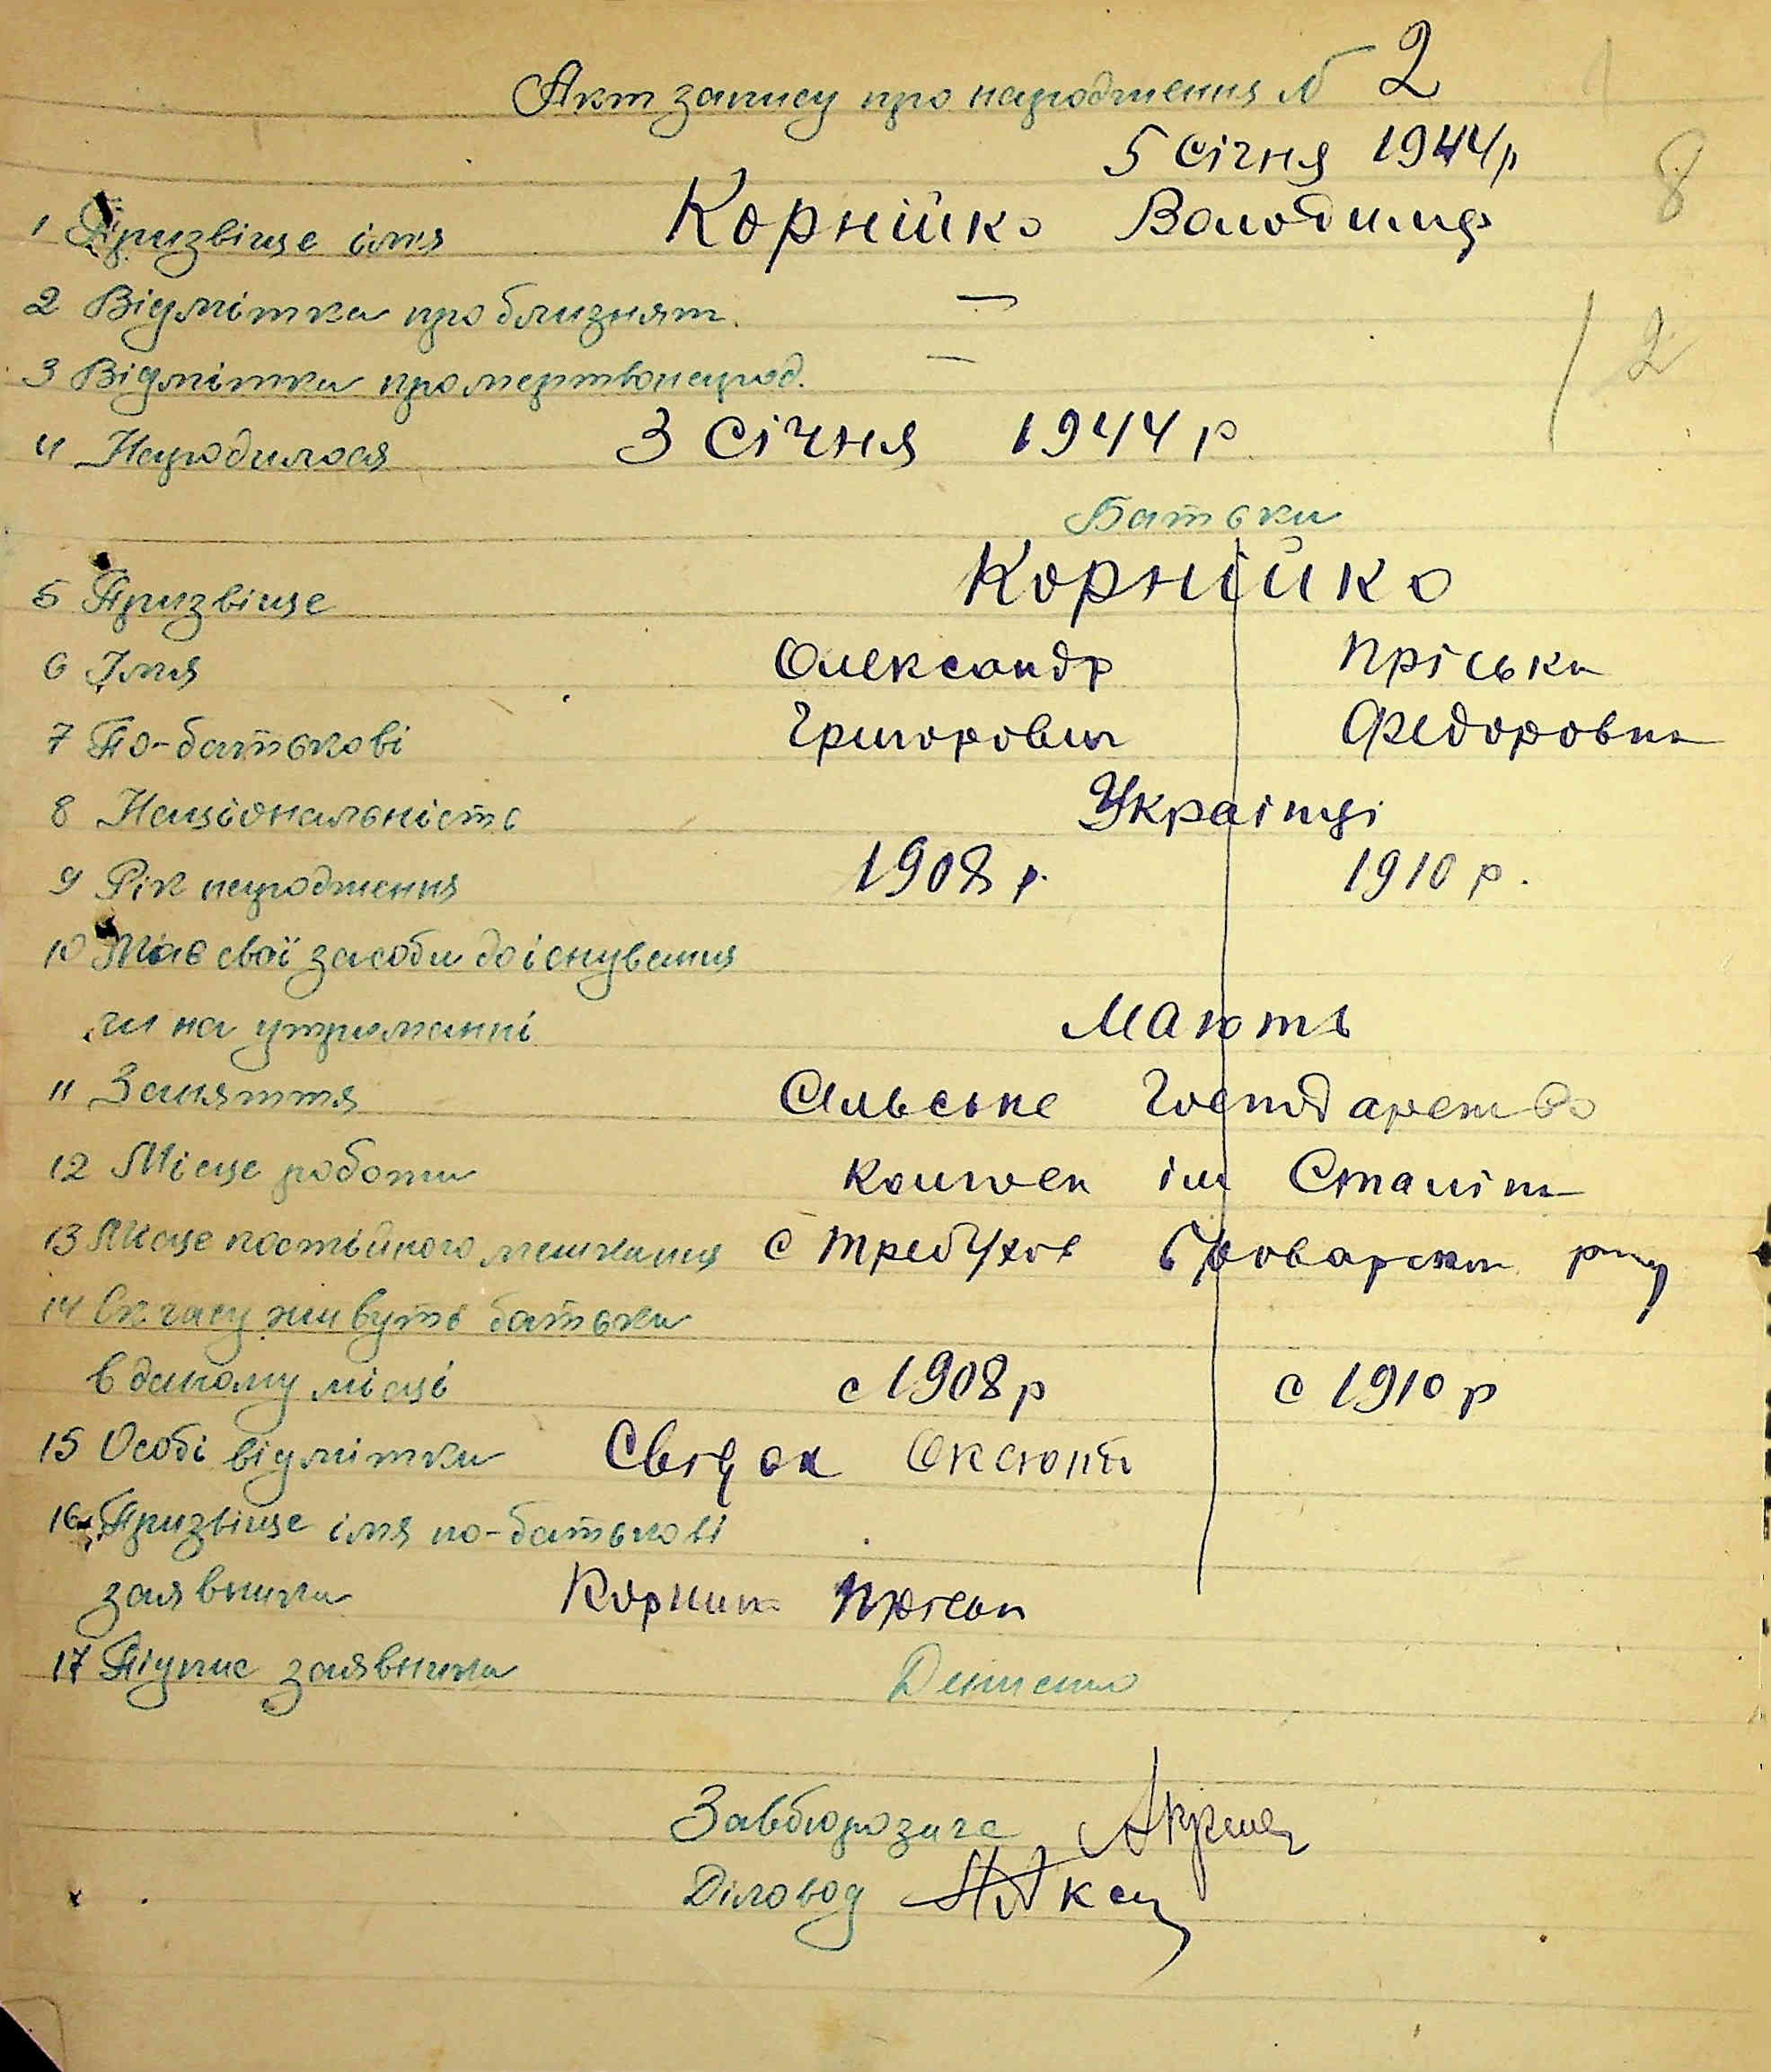 Акт запису про народження № 2
5 січня 1944 р
8
1 Прizвіще імя Корнійко Володимир
2 Відмітка про близнят. —
3 Відмітка про мертвонарод. —
2
4 Народилося 3 Січня 1944 р
Батьки
5 Призвіще Корнійко
6 Імя Олександр Пріська
7 По-батькові Григорович Федоровна
8 Національність Украінці
9 Рік народження 1908 р. 1910 р.
10 Має свої засоби до існування
чи на утриманні Мають
11 Заняття Сильське Господарство
12 Місце роботи Колгосп ім Сталіна
13 Місце постійного мешкання с Требухов Броварськ р-ну
14 Ск часу живуть батьки
в даному місці с 1908 р с 1910 р
15 Особі відмітки Свідок
16 Призвіще імя по-батькові
заявника
17 Підпис заявника
Завбюрозагс
Діловод